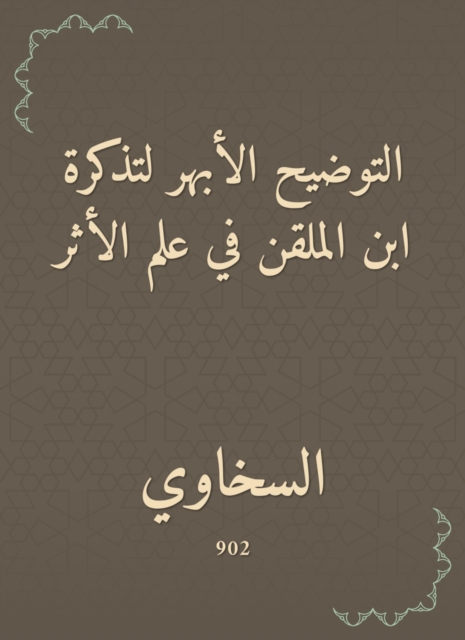 التوضيح الأبهر لتذكرة
ابن الملقن في علم الأثر
السخاوي
902